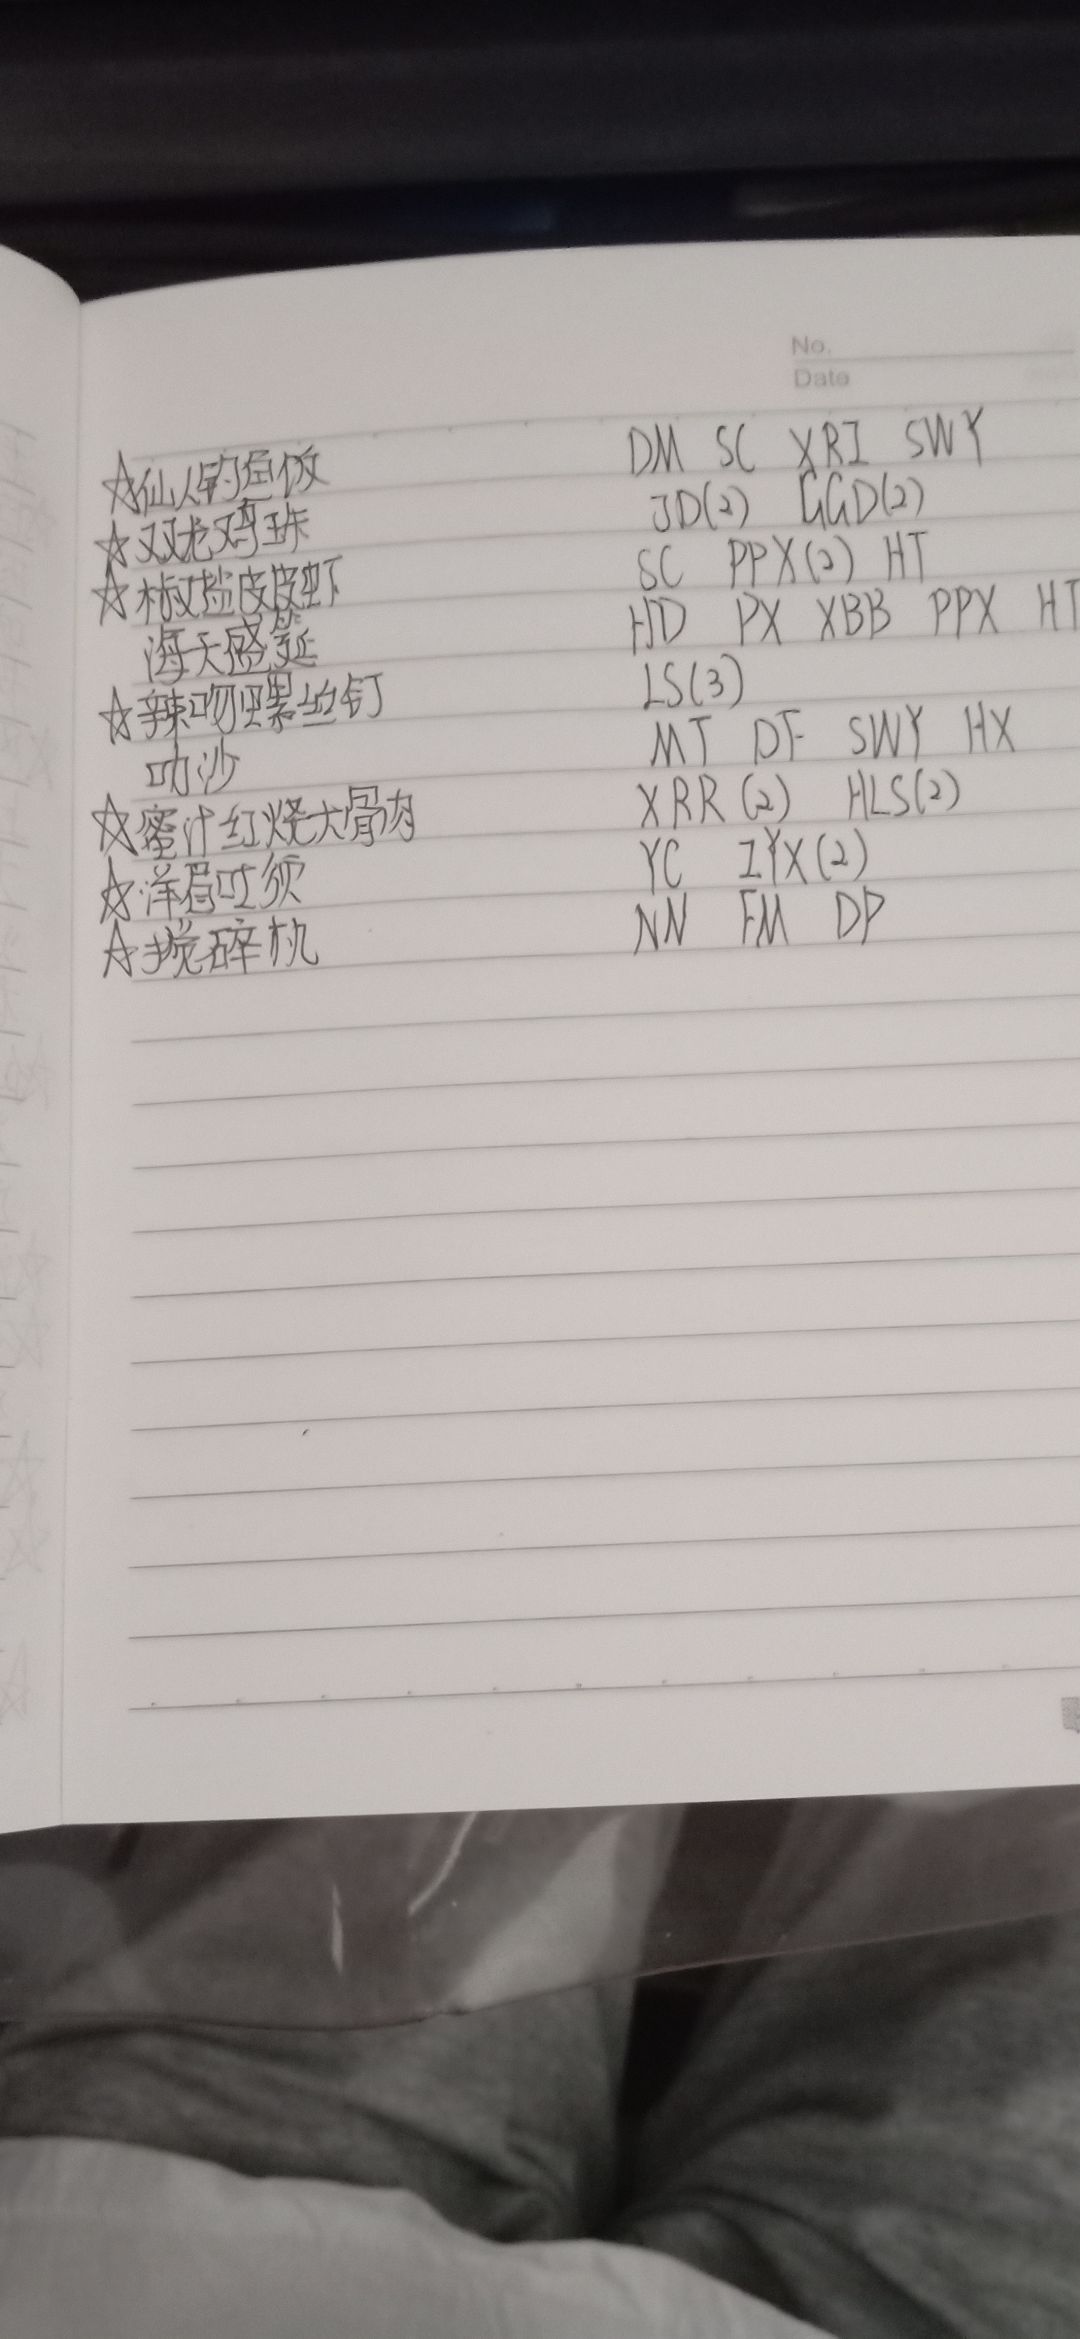 No.
Date
☆仙人钓鱼饭 DM SC XRI SWY
☆双龙戏珠 JD(2) GGD(2)
☆椒盐皮皮虾 SC PPX(2) HT
海天盛筵 HD PX XBB PPX HT
☆辣吻螺丝钉 LS(3)
叻沙 MT DF SWY HX
☆蜜汁红烧大骨肉 XRR(2) HLS(2)
☆洋眉吐须 YC IYX(2)
☆搅碎机 NN FM DP